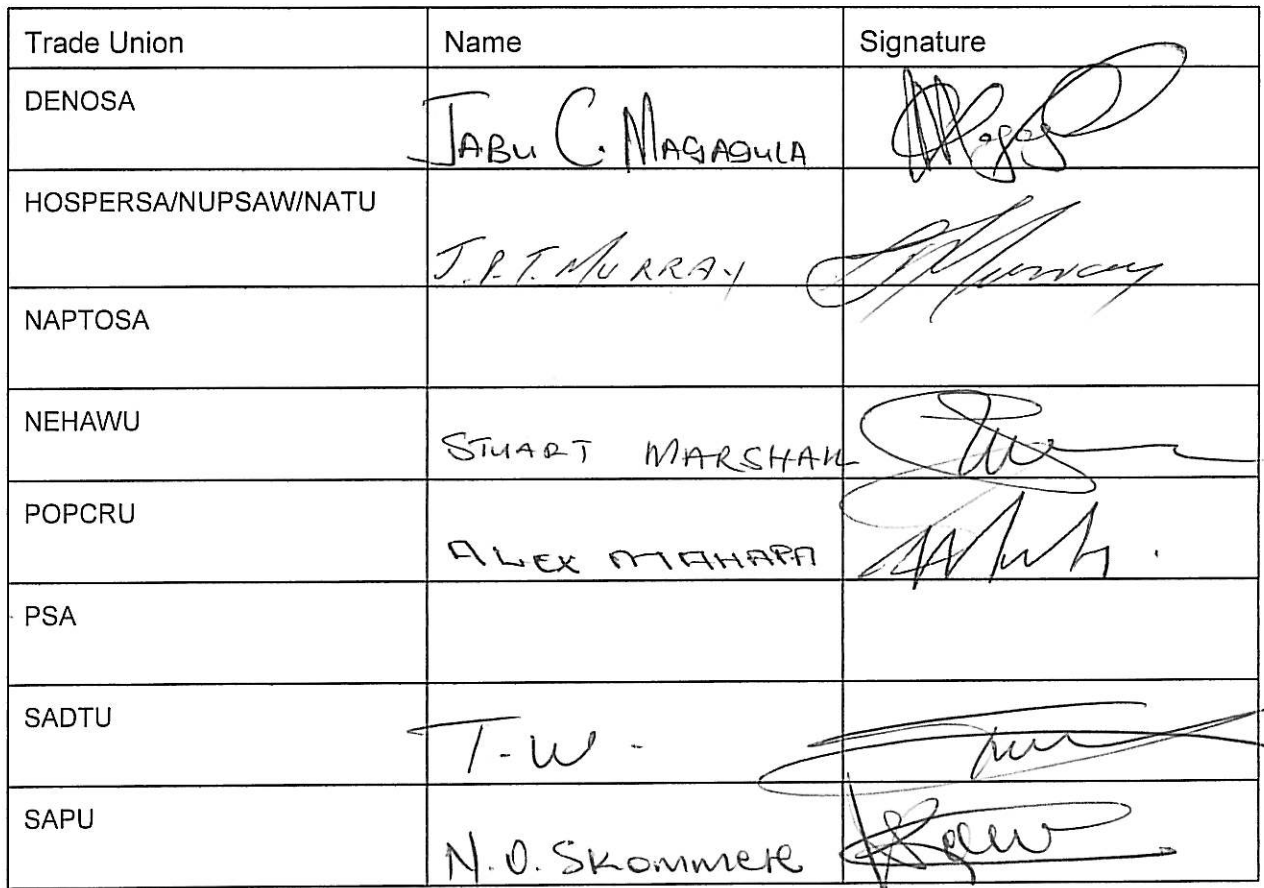 Trade Union Name Signature
DENOSA JABU C. MAGAGULA
HOSPERSA/NUPSAW/NATU J.P.T. MURRAY
NAPTOSA
NEHAWU STUART MARSHALL
POPCRU ALEX MAHAPA
PSA
SADTU T.W.
SAPU N.O.